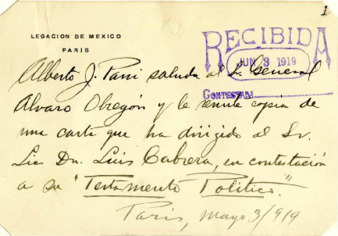 1
LEGACION DE MEXICO
PARIS
RECIBIDA
JUN 3 1919
CONTESTADA
Alberto J. Pani saluda al Sr. General
Alvaro Obregón y le remite copia de
una carta que ha dirigido al Sr.
Lic Dn. Luis Cabrera, en contestación
a su "Testamento Político."
Paris, Mayo 3/919